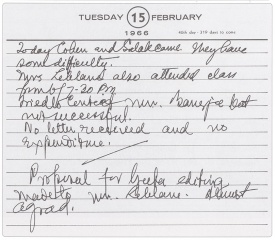 TUESDAY 15 FEBRUARY
1966
46th day - 319 days to come
Today Cohen and came they have
some difficulty.
Mrs Leblane also attended class
from 6/7-30 P.M.
but
not successful.
No letter received and no
expenditure.
Proposal for Geeta editing
made to Mr. Leblane. Almost
agreed.